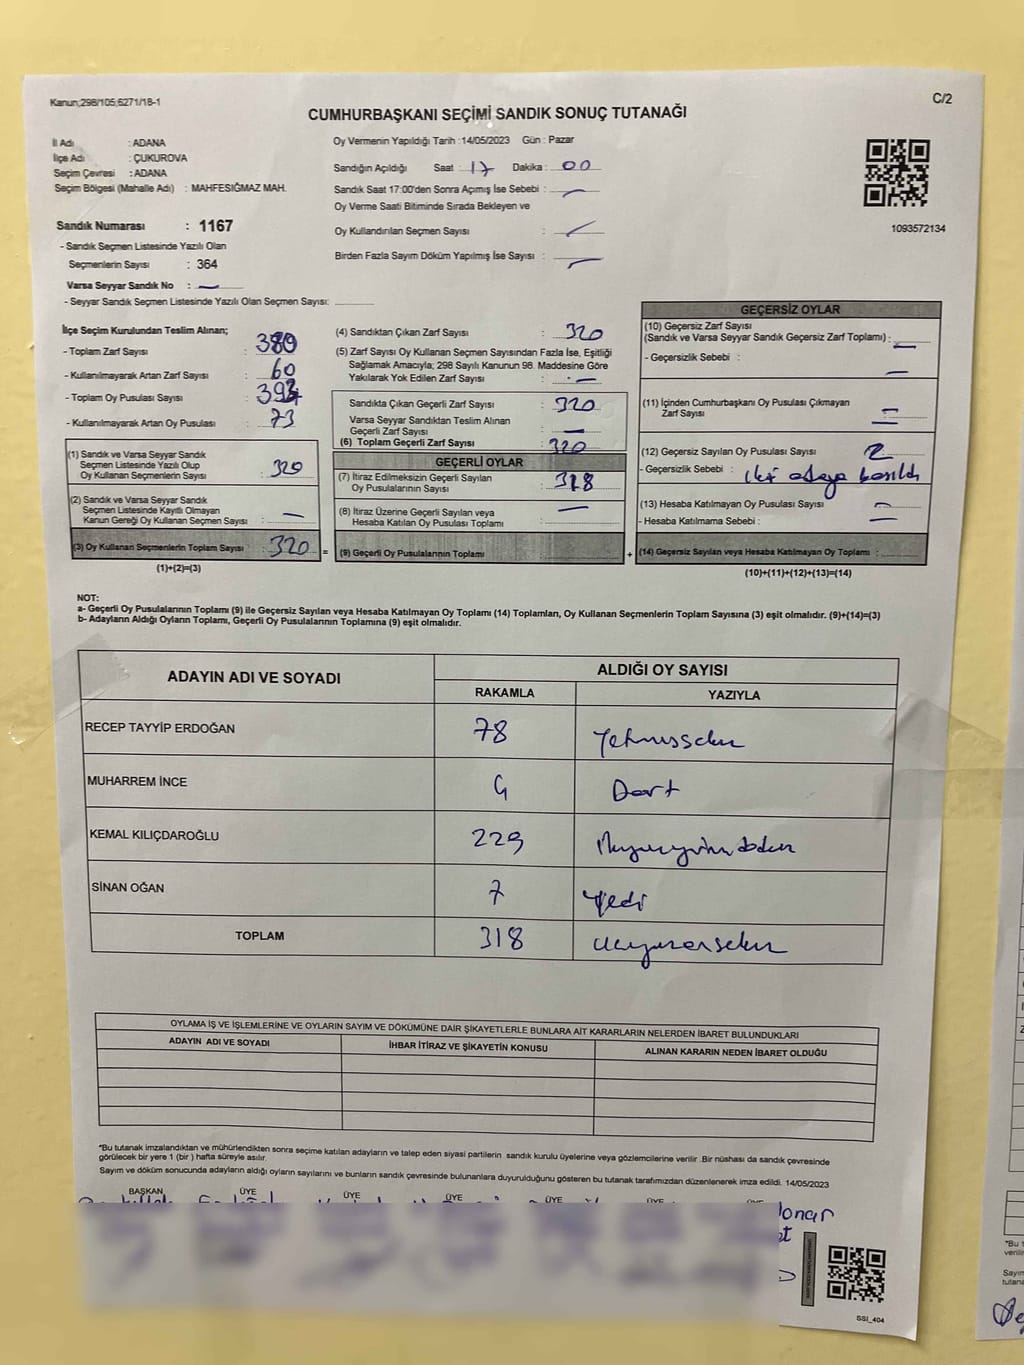 Kanun;298/105;6271/18-1
C/2
CUMHURBAŞKANI SEÇİMİ SANDIK SONUÇ TUTANAĞI
İl Adı : ADANA
İlçe Adı : ÇUKUROVA
Seçim Çevresi : ADANA
Seçim Bölgesi (Mahalle Adı) : MAHFESIĞMAZ MAH.
Sandık Numarası : 1167
- Sandık Seçmen Listesinde Yazılı Olan
Seçmenlerin Sayısı : 364
Varsa Seyyar Sandık No : —
- Seyyar Sandık Seçmen Listesinde Yazılı Olan Seçmen Sayısı:
Oy Vermenin Yapıldığı Tarih :14/05/2023 Gün : Pazar
Sandığın Açıldığı Saat : 17 Dakika : 00
Sandık Saat 17:00'den Sonra Açımış İse Sebebi : —
Oy Verme Saati Bitiminde Sırada Bekleyen ve
Oy Kullandırılan Seçmen Sayısı : —
Birden Fazla Sayım Döküm Yapılmış İse Sayısı : —
1093572134
İlçe Seçim Kurulundan Teslim Alınan;
- Toplam Zarf Sayısı : 380
- Kullanılmayarak Artan Zarf Sayısı : 60
- Toplam Oy Pusulası Sayısı :
- Kullanılmayarak Artan Oy Pusulası : 73
(1) Sandık ve Varsa Seyyar Sandık
Seçmen Listesinde Yazılı Olup
Oy Kullanan Seçmenlerin Sayısı : 320
(2) Sandık ve Varsa Seyyar Sandık
Seçmen Listesinde Kayıtlı Olmayan
Kanun Gereği Oy Kullanan Seçmen Sayısı : —
(3) Oy Kullanan Seçmenlerin Toplam Sayısı : 320 =
(1)+(2)=(3)
(4) Sandıktan Çıkan Zarf Sayısı : 320
(5) Zarf Sayısı Oy Kullanan Seçmen Sayısından Fazla İse, Eşitliği
Sağlamak Amacıyla; 298 Sayılı Kanunun 98. Maddesine Göre
Yakılarak Yok Edilen Zarf Sayısı : —
Sandıkta Çıkan Geçerli Zarf Sayısı : 320
Varsa Seyyar Sandıktan Teslim Alınan
Geçerli Zarf Sayısı : —
(6) Toplam Geçerli Zarf Sayısı : 320
GEÇERLİ OYLAR
(7) İtiraz Edilmeksizin Geçerli Sayılan
Oy Pusulalarının Sayısı : 318
(8) İtiraz Üzerine Geçerli Sayılan veya
Hesaba Katılan Oy Pusulası Toplamı : —
(9) Geçerli Oy Pusulalarının Toplamı +
GEÇERSİZ OYLAR
(10) Geçersiz Zarf Sayısı
(Sandık ve Varsa Seyyar Sandık Geçersiz Zarf Toplamı) : —
- Geçersizlik Sebebi : —
(11) İçinden Cumhurbaşkanı Oy Pusulası Çıkmayan
Zarf Sayısı : —
(12) Geçersiz Sayılan Oy Pusulası Sayısı : 2
- Geçersizlik Sebebi : iki adaya basıldı
(13) Hesaba Katılmayan Oy Pusulası Sayısı : —
- Hesaba Katılmama Sebebi : —
(14) Geçersiz Sayılan veya Hesaba Katılmayan Oy Toplamı :
(10)+(11)+(12)+(13)=(14)
NOT:
a- Geçerli Oy Pusulalarının Toplamı (9) ile Geçersiz Sayılan veya Hesaba Katılmayan Oy Toplamı (14) Toplamları, Oy Kullanan Seçmenlerin Toplam Sayısına (3) eşit olmalıdır. (9)+(14)=(3)
b- Adayların Aldığı Oyların Toplamı, Geçerli Oy Pusulalarının Toplamına (9) eşit olmalıdır.
ADAYIN ADI VE SOYADI
ALDIĞI OY SAYISI
RAKAMLA YAZIYLA
RECEP TAYYİP ERDOĞAN 78 Yetmişsekiz
MUHARREM İNCE 4 Dört
KEMAL KILIÇDAROĞLU 229
SİNAN OĞAN 7 Yedi
TOPLAM 318 üçyüzonsekiz
OYLAMA İŞ VE İŞLEMLERİNE VE OYLARIN SAYIM VE DÖKÜMÜNE DAİR ŞİKAYETLERLE BUNLARA AİT KARARLARIN NELERDEN İBARET BULUNDUKLARI
ADAYIN ADI VE SOYADI İHBAR İTİRAZ VE ŞİKAYETİN KONUSU ALINAN KARARIN NEDEN İBARET OLDUĞU
*Bu tutanak imzalandıktan ve mühürlendikten sonra seçime katılan adayların ve talep eden siyasi partilerin sandık kurulu üyelerine veya gözlemcilerine verilir .Bir nüshası da sandık çevresinde
görülecek bir yere 1 (bir ) hafta süreyle asılır.
Sayım ve döküm sonucunda adayların aldığı oyların sayılarını ve bunların sandık çevresinde bulunanlara duyurulduğunu gösteren bu tutanak tarafımızdan düzenlenerek imza edildi. 14/05/2023
BAŞKAN ÜYE ÜYE ÜYE ÜYE ÜYE
SSI_404